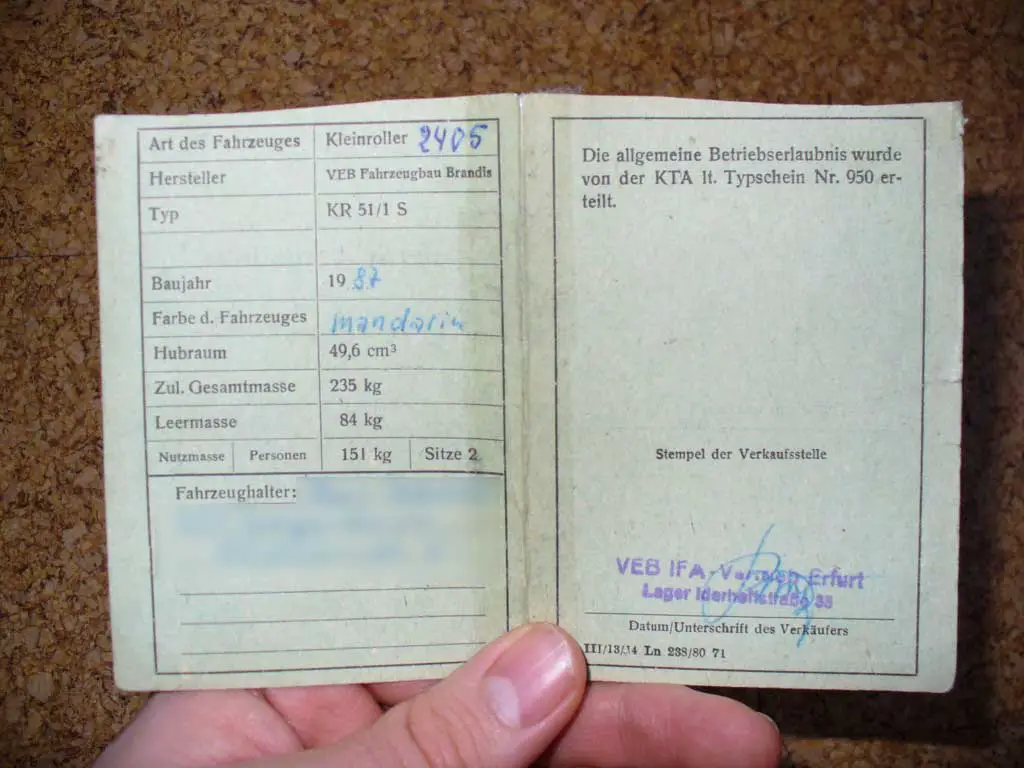 Art des Fahrzeuges Kleinroller 2405
Hersteller VEB Fahrzeugbau Brandis
Typ KR 51/1 S
Baujahr 19 87
Farbe d. Fahrzeuges mandarin
Hubraum 49,6 cm³
Zul. Gesamtmasse 235 kg
Leermasse 84 kg
Nutzmasse Personen 151 kg Sitze 2
Fahrzeughalter:
Die allgemeine Betriebserlaubnis wurde
von der KTA lt. Typschein Nr. 950 er-
teilt.
Stempel der Verkaufsstelle
VEB IFA-Vertrieb Erfurt
Lager Iderhoffstraße 38
Datum/Unterschrift des Verkäufers
III/13/14 Ln 238/80 71